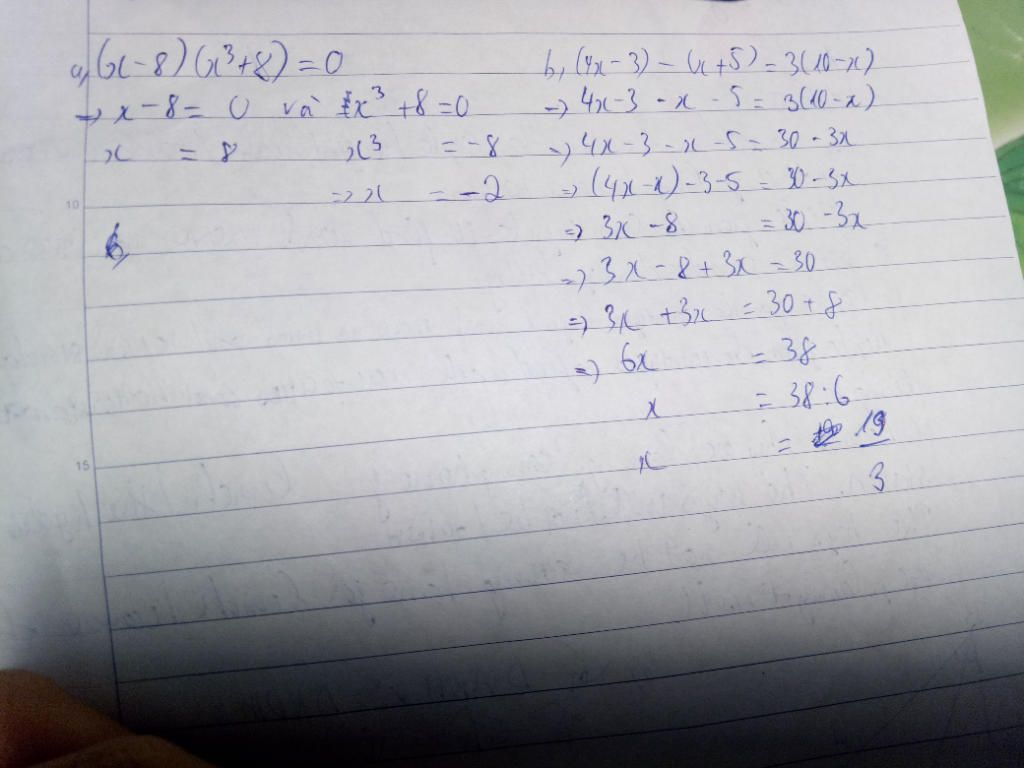 a, (x-8)(x³+8)=0
=> x-8= 0 và x³ +8=0
x = 8 x³ = -8
=> x = -2
b,
b, (4x-3) - (x+5) = 3(10-x)
=> 4x-3 - x - 5 = 3(10-x)
=> 4x-3 -x -5 = 30 - 3x
=> (4x-x) -3-5 = 30-3x
=> 3x -8 = 30 -3x
=> 3x - 8 + 3x = 30
=> 3x +3x = 30 + 8
=> 6x = 38
x = 38:6
x = 19/3
10
15